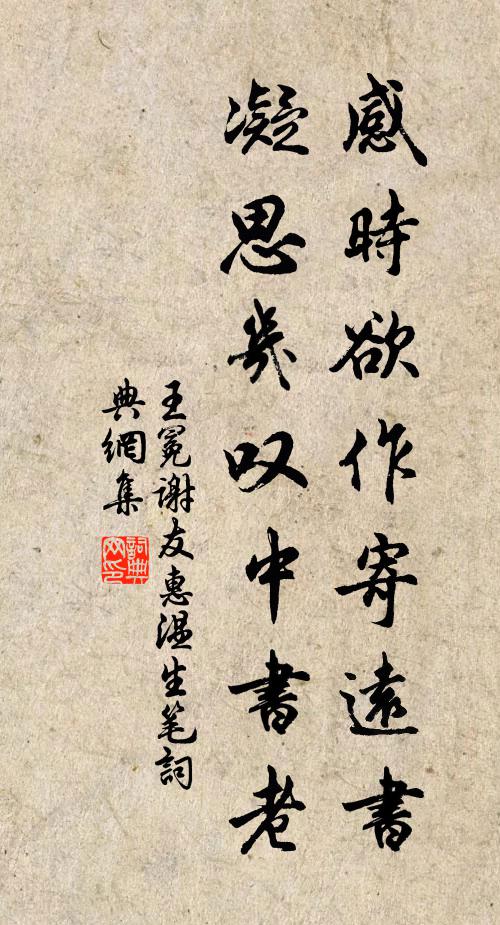 感時欲作寄遠書
凝思幾叹中書老
王冕谢友惠温生笔詞
典網集
詞典网印